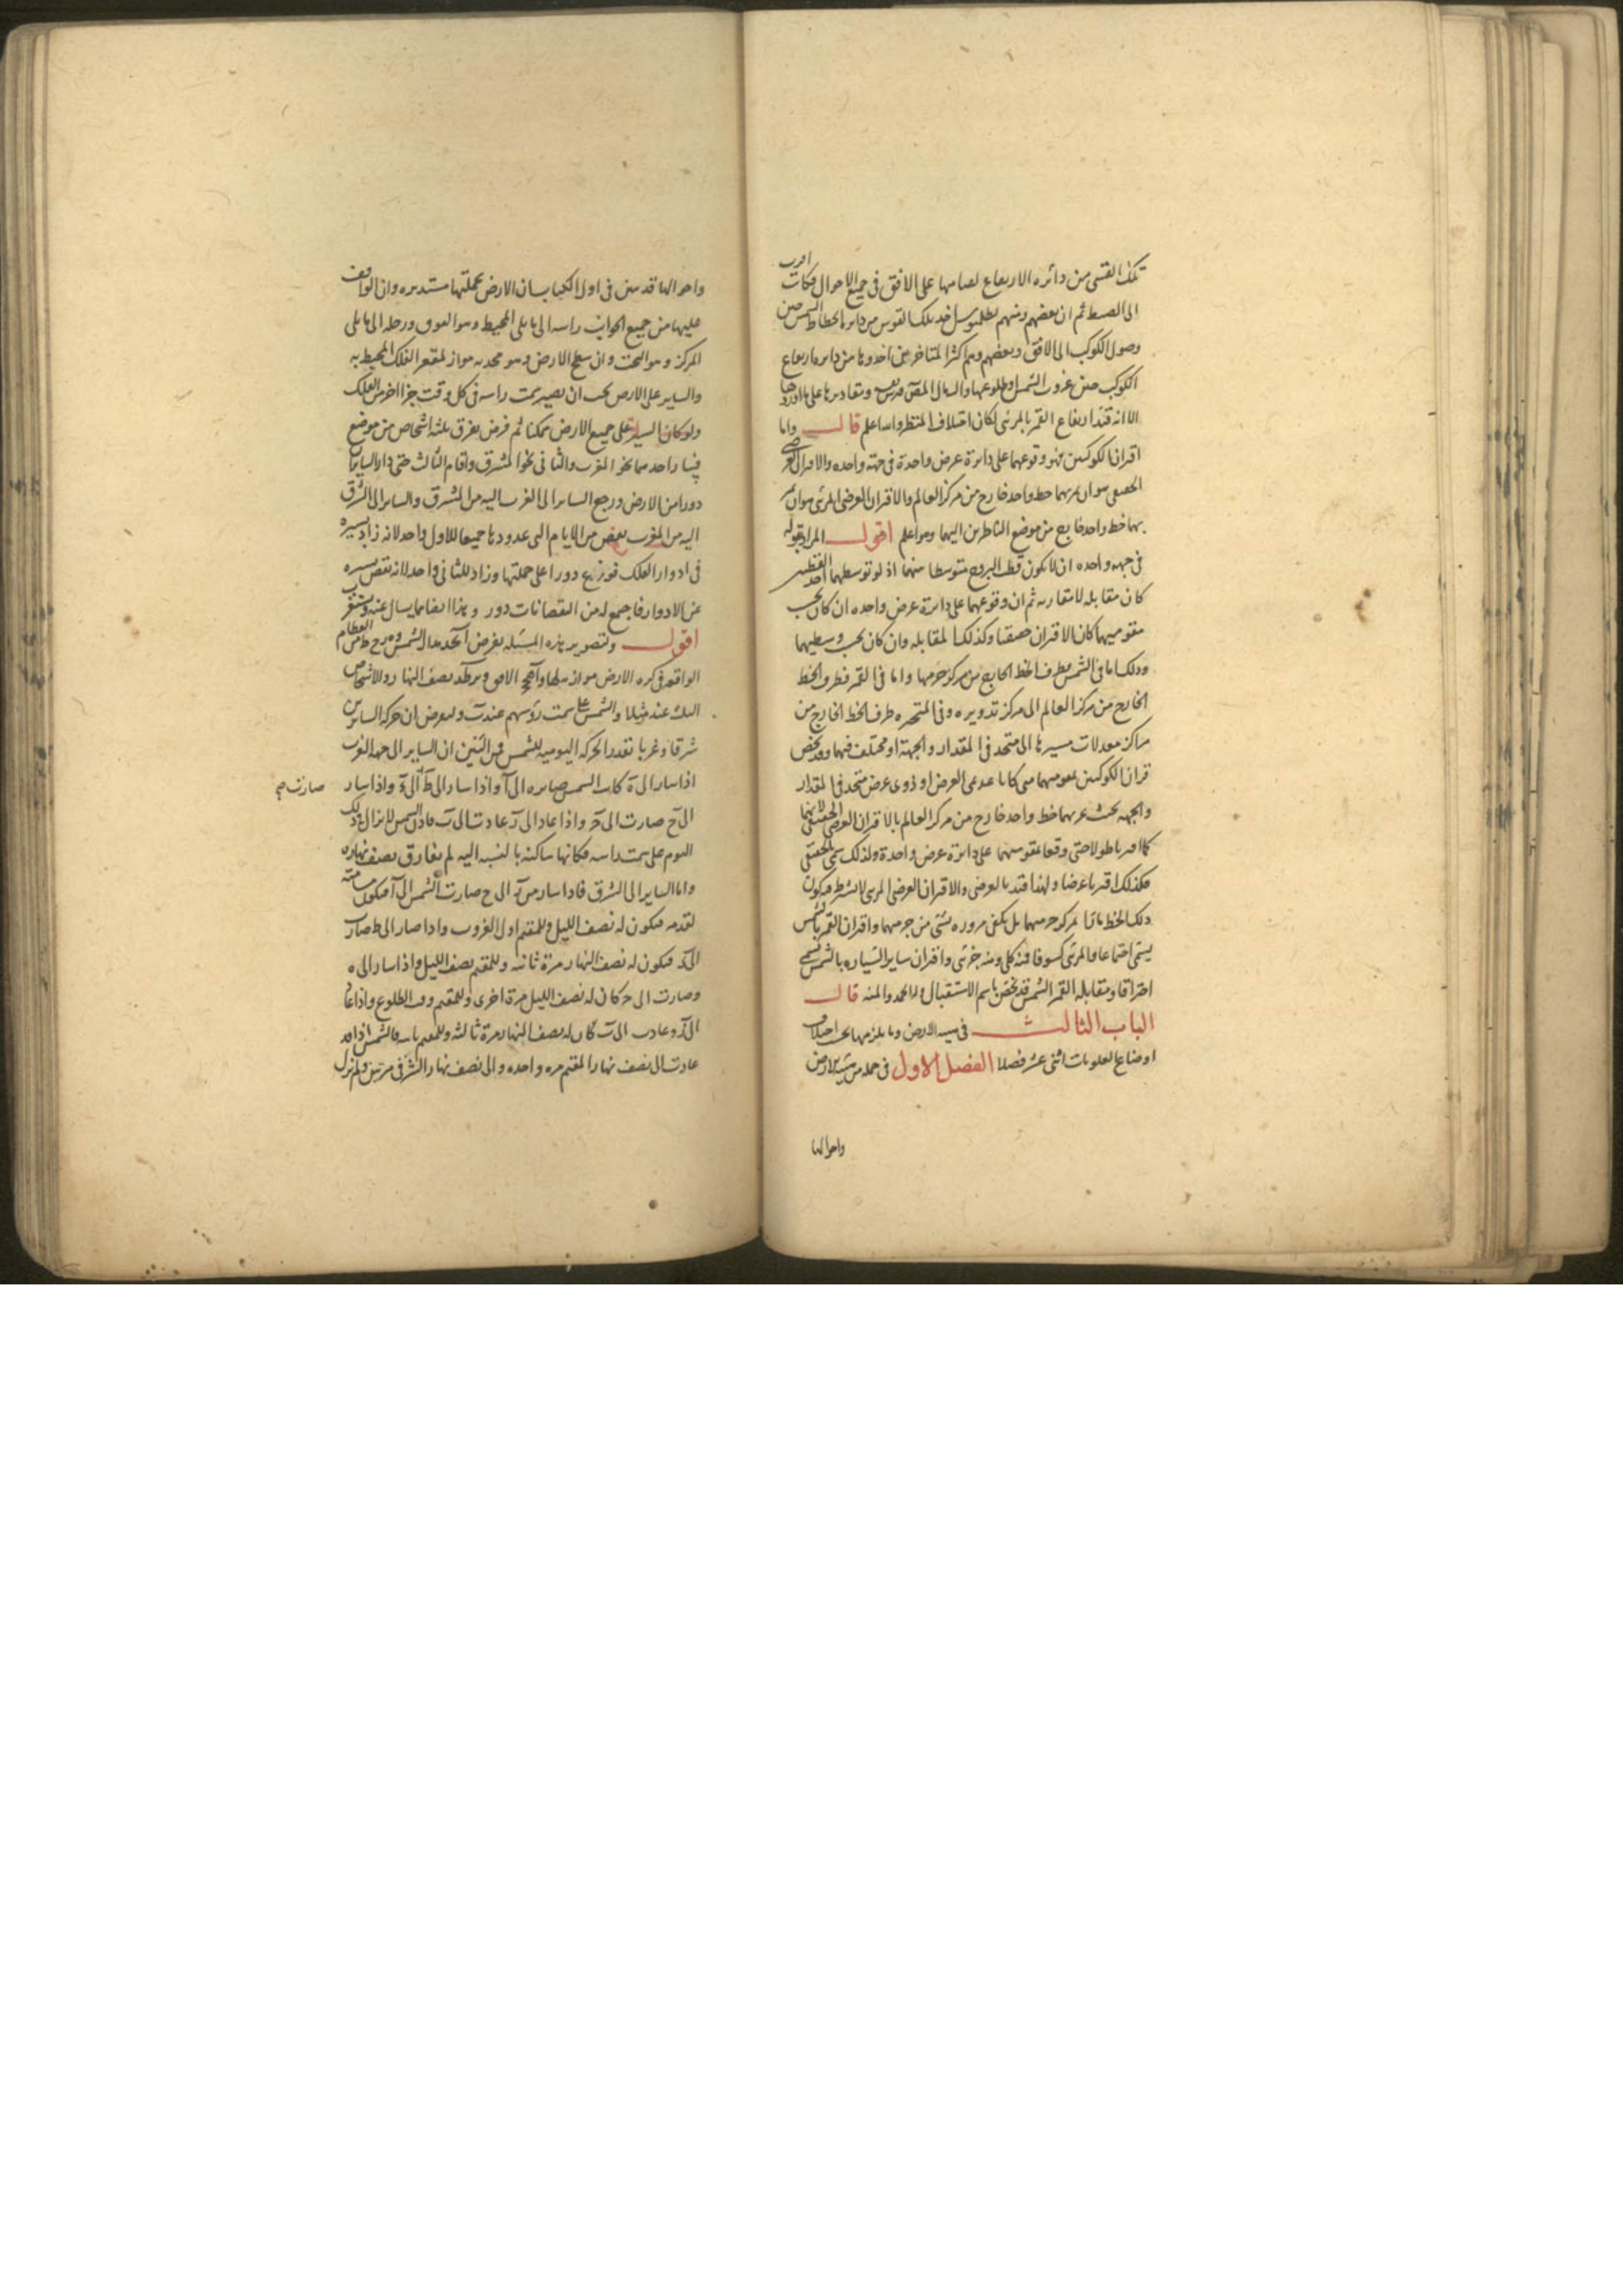 تلك القسى من دائره الارتفاع لقيامها على الافق فى جميع الاحوال فكانت اقرب
الى الضبط ثم ان بعضهم ومنهم بطلميوس اخذ تلك القوس من دايره انحطاط الشمس حين
وصول الكوكب الى الافق وبعضهم وهم اكثر المتاخرين اخذوها من دايره ارتفاع
الكوكب حين غروب الشمس او طلوعها
الا انه قيد ارتفاع القمر بالمرئى لمكان اختلاف المنظر والله اعلم قال واما
اقتران الكوكبين فهو وقوعهما على دائرة عرض واحدة فى جهة واحده والاقتران العرضى
الحقيقى هو ان يمر بهما خط واحد خارج من مركز العالم والاقتران العرضى المرئى هو ان يمر
بهما خط واحد خارج من موضع الناظرين اليهما وهو اعلم اقول المراد بقوله
فى جهه واحده ان لا يكون قطب البروج متوسطا بينهما اذ لو توسطهما احد القطبين
كان مقابله لا مقارنه ثم ان وقوعهما على دائرة عرض واحده ان كان بحسب
مقوميهما كان الاقتران حقيقيا وكذلك المقابله وان كان بحسب وسطيهما
وذلك اما فى الشمس فطرف الخط الخارج من مركز جرمها واما فى القمر فطرف الخط
الخارج من مركز العالم الى مركز تدويره وفى المتحيره طرف الخط الخارج من
مراكز معدلات مسيرها الى متحد فى المقدار والجهة او مختلف فيهما وقد يخص
قران الكوكبين بمقوميهما متى كانا عديمى العرض او ذوى عرض متحد فى المقدار
والجهه بحيث يمر بهما خط واحد خارج من مركز العالم بالاقتران العرضى الحقيقى لانهما
كما اقترنا طولا حتى وقعا بمقوميهما على دائرة عرض واحدة ولذلك سمى بالحقيقى
فكذلك اقترنا عرضا ولهذا قيد بالعرضى والاقتران العرضى المرئى لا يشترط فيه كون
ذلك الخط مارا بمركز جرميهما بل يكفى مروره بشئ من جرمهما واقتران القمر بالشمس
يسمى اجتماعا والمرئى كسوفا فمنه كلى ومنه جزئى واقتران ساير السياره بالشمس يسمى
احتراقا ومقابله القمر الشمس قد تخص باسم الاستقبال ولله الحمد والمنه قال
الباب الثالث فى هيئه الارض وما يلزمها بحسب اختلاف
اوضاع العلويات اثنى عشر فصلا الفصل الاول فى جمله من هيئه الارض
واحوالها
واحوالها قد تبين فى اول الكتاب ان الارض بجملتها مستديره وان الواقف
عليها من جميع الجوانب راسه الى ما يلى المحيط وهو الفوق ورجله الى ما يلى
المركز وهو التحت وان سطح الارض وهو محدبه مواز لمقعر الفلك المحيط به
والساير على الارض يجب ان يصير سمت راسه فى كل وقت جزءا اخر من الفلك
ولو كان السير على جميع الارض ممكنا ثم فرض تفرق ثلثه اشخاص من موضع
فسار احدهما نحو المغرب والثانى نحو المشرق واقام الثالث حتى دار السايران
دورا من الارض ورجع الساير الى الغرب اليه من المشرق والساير الى الشرق
اليه من المغرب نقص من الايام التى عدودها جميعا للاول واحد لانه زاد بسيره
فى ادوار الفلك فوزع دورا على جملتها وزاد للثانى واحد لانه نقص بسيره
عن الادوار فاجتمع له من النقصانات دور وهذا ايضا مما يسال عنه ويستغرب
اقول وتصوير هذه المسئله نفرض مدار الشمس من العظام
الواقعه فى كره الارض موازيه لها الافق نصف النهار والاشخاص
الثلثه عند مثلا والشمس على سمت رؤسهم عند ولنفرض ان حركه السايرين
شرقا وغربا بقدر الحركه اليوميه للشمس فمن البين ان الساير الى جهه الغرب
اذا سار الى ه كانت الشمس صايره الى آ واذا سار الى ط الى ء واذا سار
صارت صح
الى ح صارت الى ج واذا عاد الى ر عادت الى ب فاذن الشمس لا تزال فى ذلك
اليوم على سمت راسه فكانها ساكنه بالنسبه اليه لم يفارق نصف نهاره
واما الساير الى الشرق فاذا سار من الى ح صارت الشمس الى آ فيكون
لقدمه فيكون له نصف الليل وللمقيم اول الغروب واذا صار الى ط صار
الى فيكون له نصف النهار مرة ثانيه وللمقيم نصف الليل واذا سار الى ه
وصارت الى ج كان له نصف الليل مرة اخرى وللمقيم وقت الطلوع واذا عاد
الى ر وعادت الى ب كان له نصف النهار مرة ثالثه وللمقيم ثانيه فالشمس اذا قد
عادت الى نصف نهار المقيم مره واحده والى نصف نهار الشرقى مرتين ولم تزل